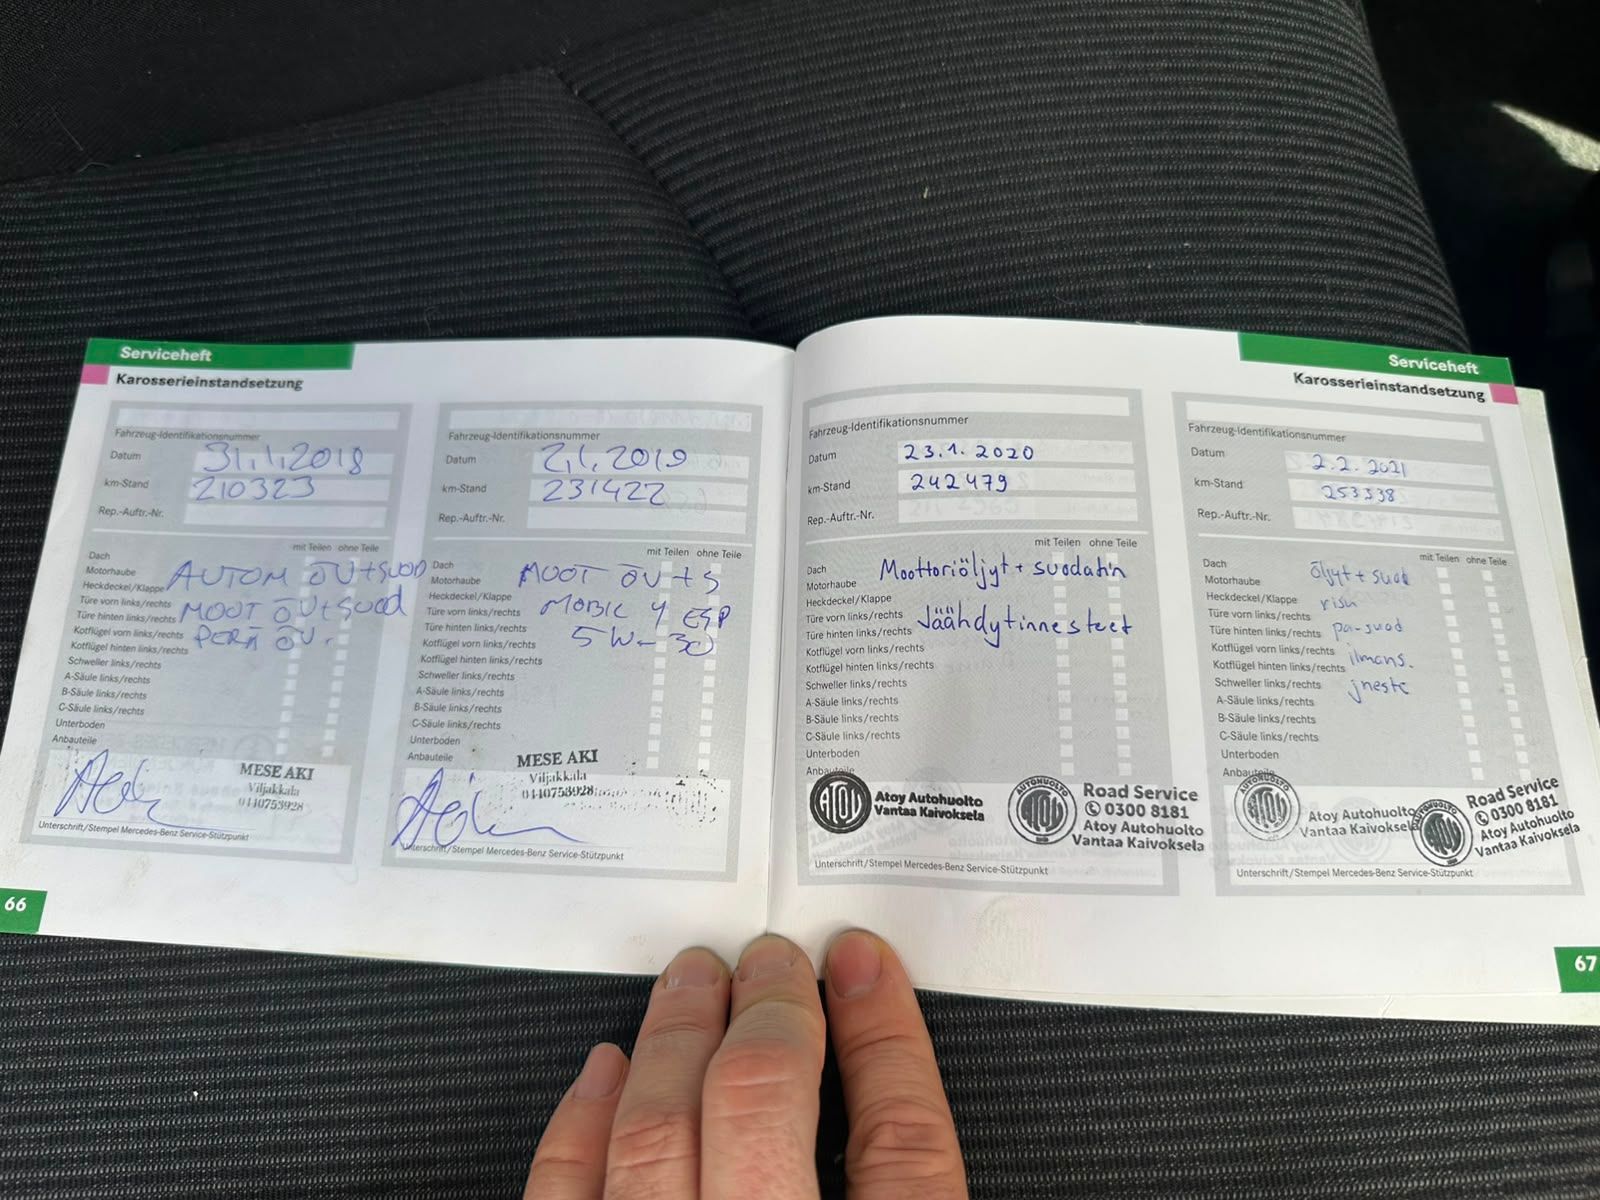 Serviceheft
Karosserieinstandsetzung
Fahrzeug-Identifikationsnummer
Datum 31.1.2018
km-Stand 210323
Rep.-Auftr.-Nr.
mit Teilen ohne Teile
Dach
Motorhaube
Heckdeckel/Klappe
Türe vorn links/rechts
Türe hinten links/rechts
Kotflügel vorn links/rechts
Kotflügel hinten links/rechts
Schweller links/rechts
A-Säule links/rechts
B-Säule links/rechts
C-Säule links/rechts
Unterboden
Anbauteile
AUTOM ÖV+SUOD
MOOT ÖV+SUOD
PERÄ ÖV.
MESE AKI
Viljakkala
0440753928
Unterschrift/Stempel Mercedes-Benz Service-Stützpunkt
66
Fahrzeug-Identifikationsnummer
Datum 2.1.2019
km-Stand 231422
Rep.-Auftr.-Nr.
mit Teilen ohne Teile
Dach
Motorhaube
Heckdeckel/Klappe
Türe vorn links/rechts
Türe hinten links/rechts
Kotflügel vorn links/rechts
Kotflügel hinten links/rechts
Schweller links/rechts
A-Säule links/rechts
B-Säule links/rechts
C-Säule links/rechts
Unterboden
Anbauteile
MOOT ÖV + S
MOBIL 1 ESP
5W-30
MESE AKI
Viljakkala
0440753928
Unterschrift/Stempel Mercedes-Benz Service-Stützpunkt
Serviceheft
Karosserieinstandsetzung
Fahrzeug-Identifikationsnummer
Datum 23.1.2020
km-Stand 242479
Rep.-Auftr.-Nr.
mit Teilen ohne Teile
Dach
Motorhaube
Heckdeckel/Klappe
Türe vorn links/rechts
Türe hinten links/rechts
Kotflügel vorn links/rechts
Kotflügel hinten links/rechts
Schweller links/rechts
A-Säule links/rechts
B-Säule links/rechts
C-Säule links/rechts
Unterboden
Anbauteile
Moottoriöljyt + suodatin
Jäähdytinnesteet
ATOY
Atoy Autohuolto
Vantaa Kaivoksela
AUTOHUOLTO
ATOY
Road Service
0300 8181
Atoy Autohuolto
Vantaa Kaivoksela
Unterschrift/Stempel Mercedes-Benz Service-Stützpunkt
Fahrzeug-Identifikationsnummer
Datum 2.2.2021
km-Stand 253338
Rep.-Auftr.-Nr.
mit Teilen ohne Teile
Dach
Motorhaube
Heckdeckel/Klappe
Türe vorn links/rechts
Türe hinten links/rechts
Kotflügel vorn links/rechts
Kotflügel hinten links/rechts
Schweller links/rechts
A-Säule links/rechts
B-Säule links/rechts
C-Säule links/rechts
Unterboden
Anbauteile
öljyt + suod
pa-suod
ilmans.
jneste
AUTOHUOLTO
ATOY
Atoy Autohuolto
Vantaa Kaivoksela
AUTOHUOLTO
ATOY
Road Service
0300 8181
Atoy Autohuolto
Vantaa Kaivoksela
Unterschrift/Stempel Mercedes-Benz Service-Stützpunkt
67